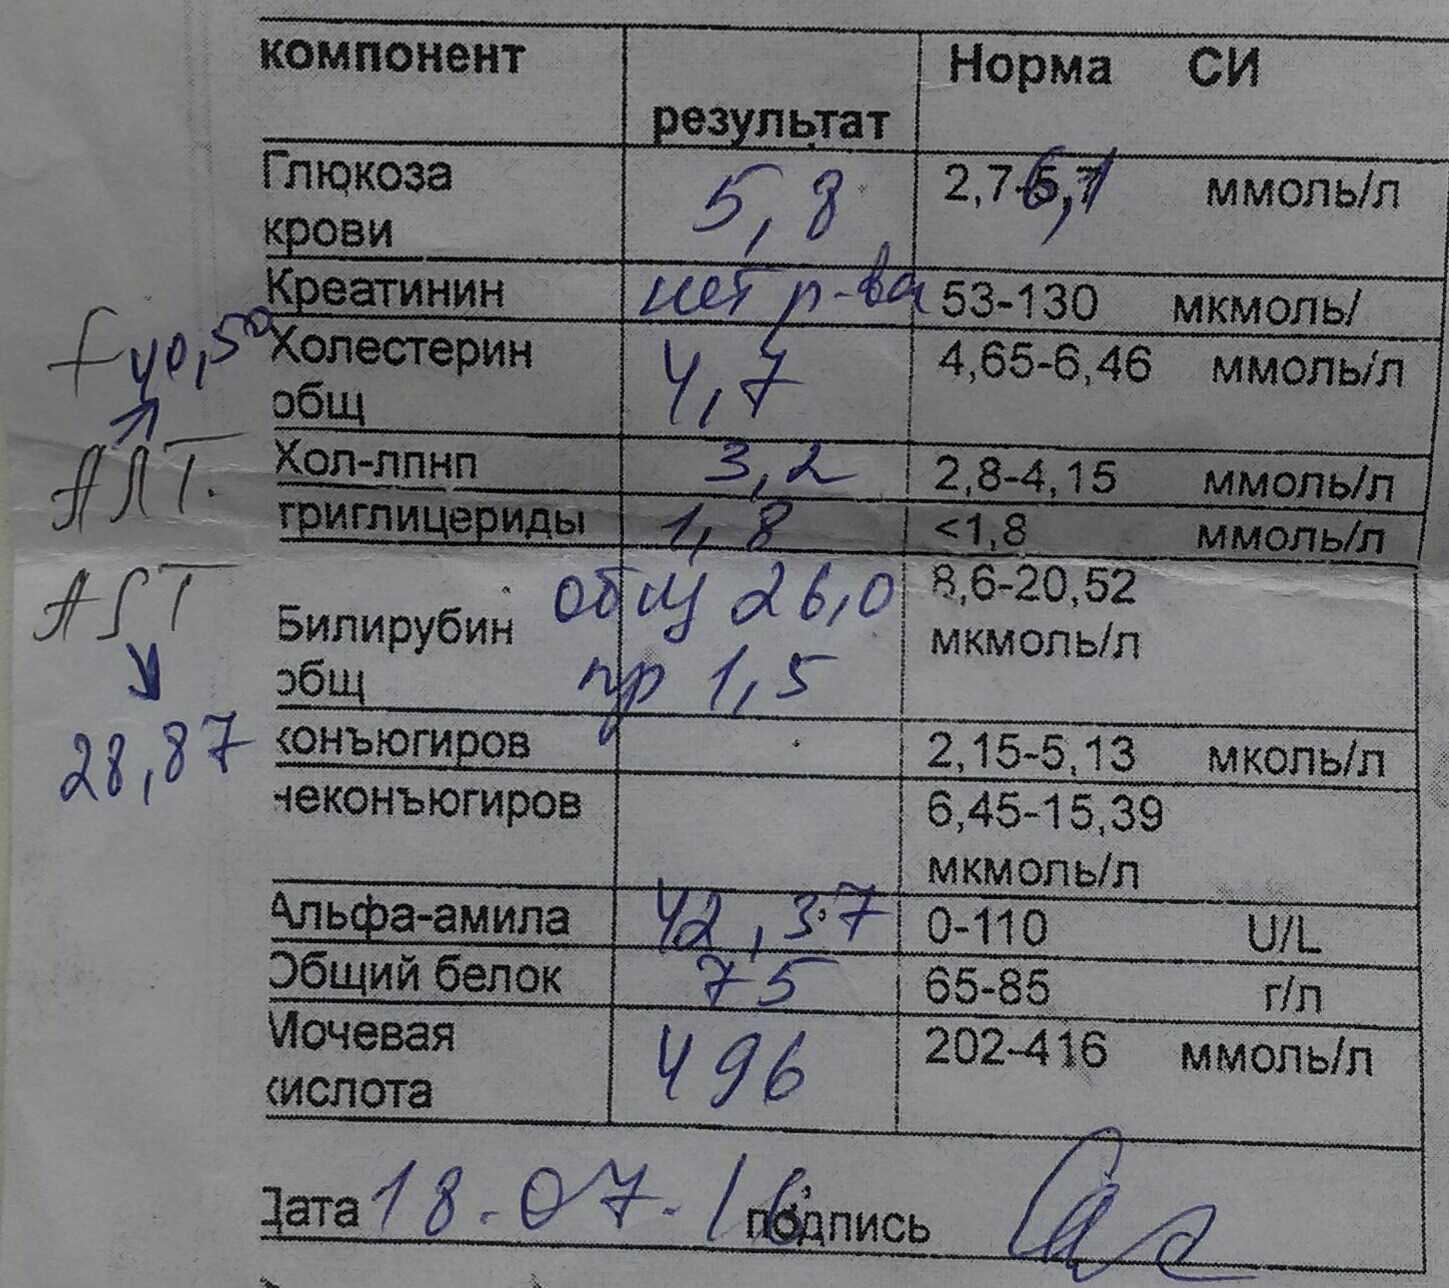 компонент результат Норма СИ
Глюкоза крови 5,8 2,7-6,1 ммоль/л
Креатинин нет р-ва 53-130 мкмоль/
40,50 Холестерин общ 4,7 4,65-6,46 ммоль/л
АЛТ. Хол-лпнп 3,2 2,8-4,15 ммоль/л
триглицериды 1,8 <1,8 ммоль/л
АSТ Билирубин общ общ 26,0 8,6-20,52 мкмоль/л
пр 1,5
28,87 конъюгиров 2,15-5,13 мколь/л
неконъюгиров 6,45-15,39 мкмоль/л
Альфа-амила 42,37 0-110 U/L
Общий белок 75 65-85 г/л
Мочевая кислота 496 202-416 ммоль/л
Дата 18.07.16 подпись